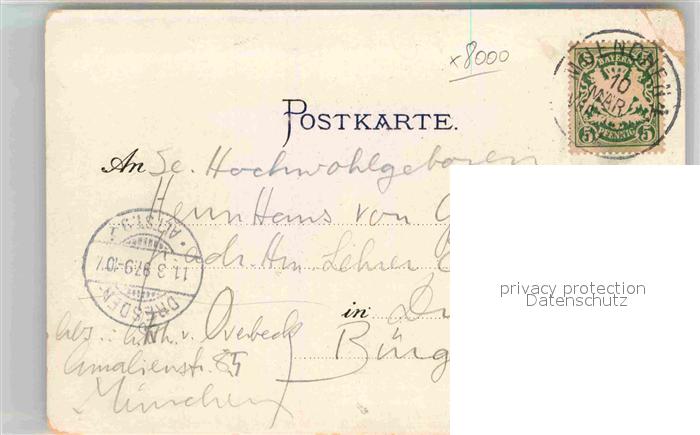 x 8000
MUENCHEN 1
10 MAR
BAYERN
5 5
5 PFENNIG 5
POSTKARTE.
An Se. Hochwohlgeboren
Herrn Hans von
adr. Hrn Lehrer
in
Bürg
DRESDEN-
ALTST.
11.3.97.9-10V.
v. Overbeck
Amalienstr. 85
München
privacy protection
Datenschutz